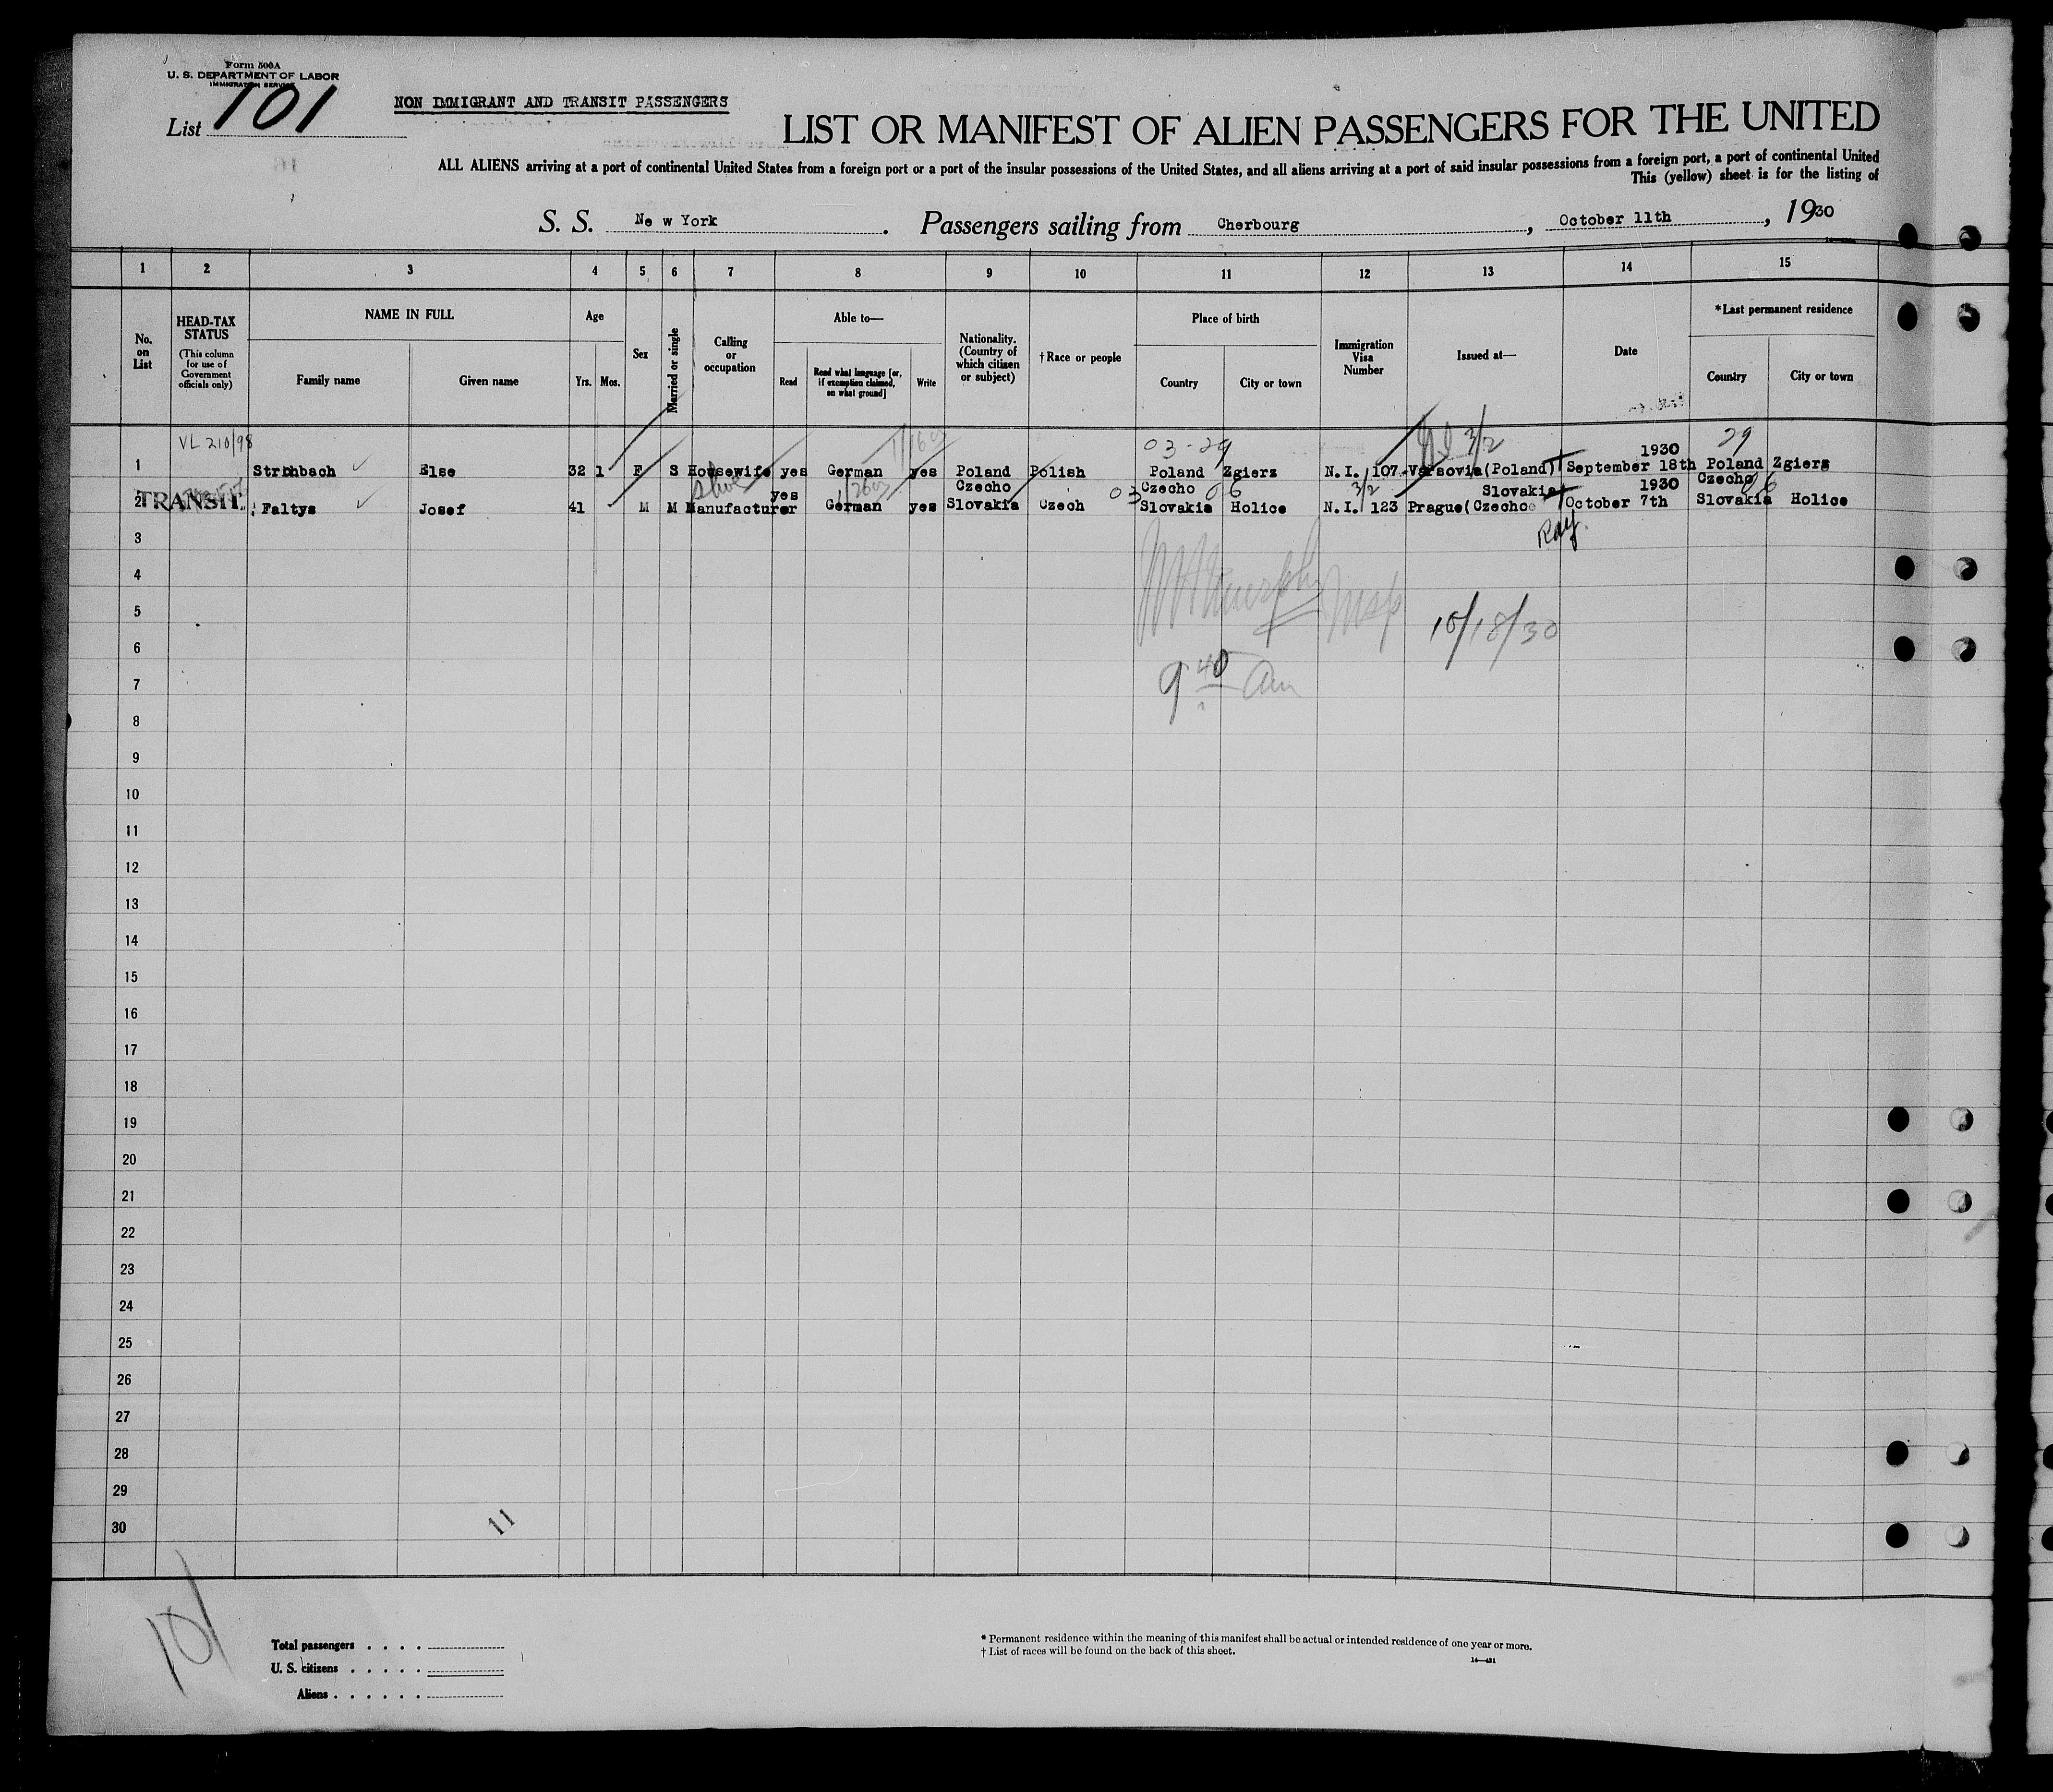 Form 500A
U. S. DEPARTMENT OF LABOR
IMMIGRATION SERVICE
List 101
NON IMMIGRANT AND TRANSIT PASSENGERS
LIST OR MANIFEST OF ALIEN PASSENGERS FOR THE UNITED
ALL ALIENS arriving at a port of continental United States from a foreign port or a port of the insular possessions of the United States, and all aliens arriving at a port of said insular possessions from a foreign port, a port of continental United
This (yellow) sheet is for the listing of
S. S. Ne w York. Passengers sailing from Cherbourg, October 11th, 1930
1 2 3 4 5 6 7 8 9 10 11 12 13 14 15
No. on List
HEAD-TAX STATUS
(This column for use of Government officials only)
NAME IN FULL
Family name Given name
Age
Yrs. Mos.
Sex
Married or single
Calling or occupation
Able to—
Read Read what language [or, if exemption claimed, on what ground] Write
Nationality. (Country of which citizen or subject)
†Race or people
Place of birth
Country City or town
Immigration Visa Number
Issued at—
Date
*Last permanent residence
Country City or town
VL 210/98 03-29 3/2 1930 29
1 Else 32 1 F S Housewife yes German yes Poland Polish Poland Zgierz N.I. 107 Varsovia(Poland) September 18th Poland Zgierz
Shoe yes Czecho 03 Czecho 06 3/2 Slovakia 1930 Czecho 06
2 TRANSIT Faltys Josef 41 M M Manufacturer German yes Slovakia Czech Slovakia Holice N.I. 123 Prague(Czecho October 7th Slovakia Holice
3
4
5
10/18/30
6
7
9 40 am
8
9
10
11
12
13
14
15
16
17
18
19
20
21
22
23
24
25
26
27
28
29
30
11
101
Total passengers . . . .
U. S. citizens . . . . .
Aliens . . . . . .
* Permanent residence within the meaning of this manifest shall be actual or intended residence of one year or more.
† List of races will be found on the back of this sheet.
14—431